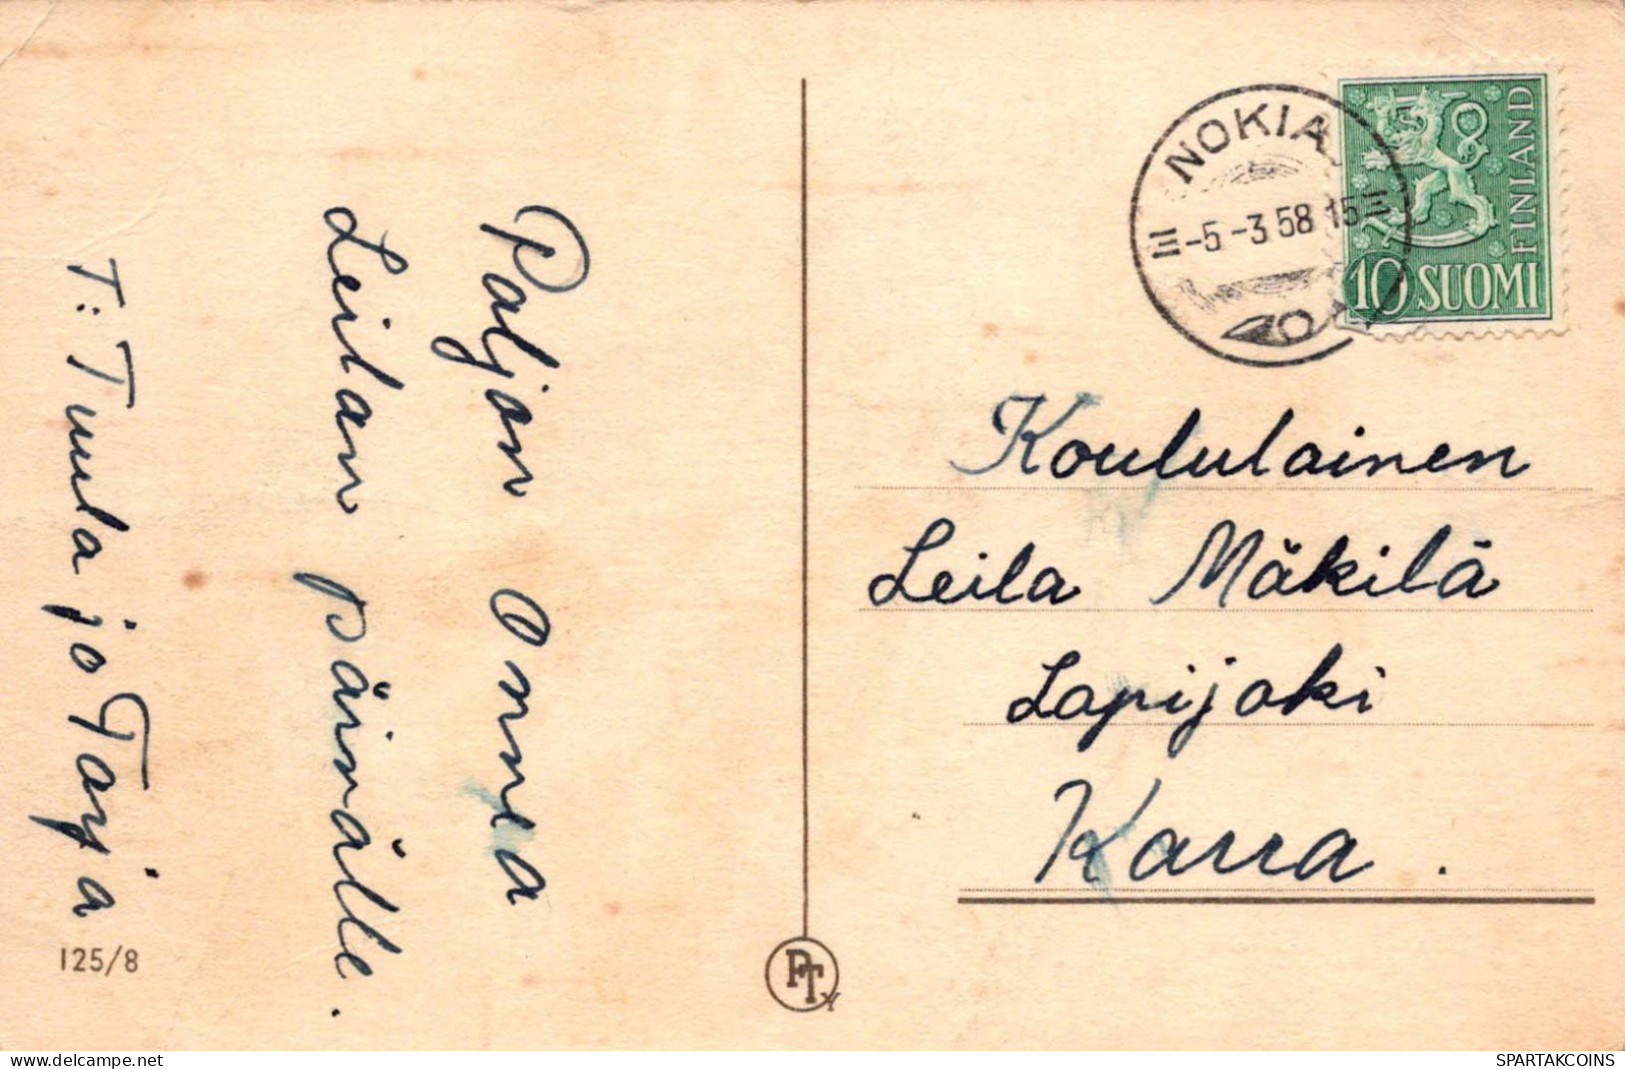 Paljon Onnea
Leilan päivälle.
T: Tuula ja Tarja
125/8
PTY
NOKIA
-5-3 58 15
10 SUOMI
FINLAND
Koululainen
Leila Mäkilä
Lapijoki
Karra.
www.delcampe.net
SPARTAKCOINS